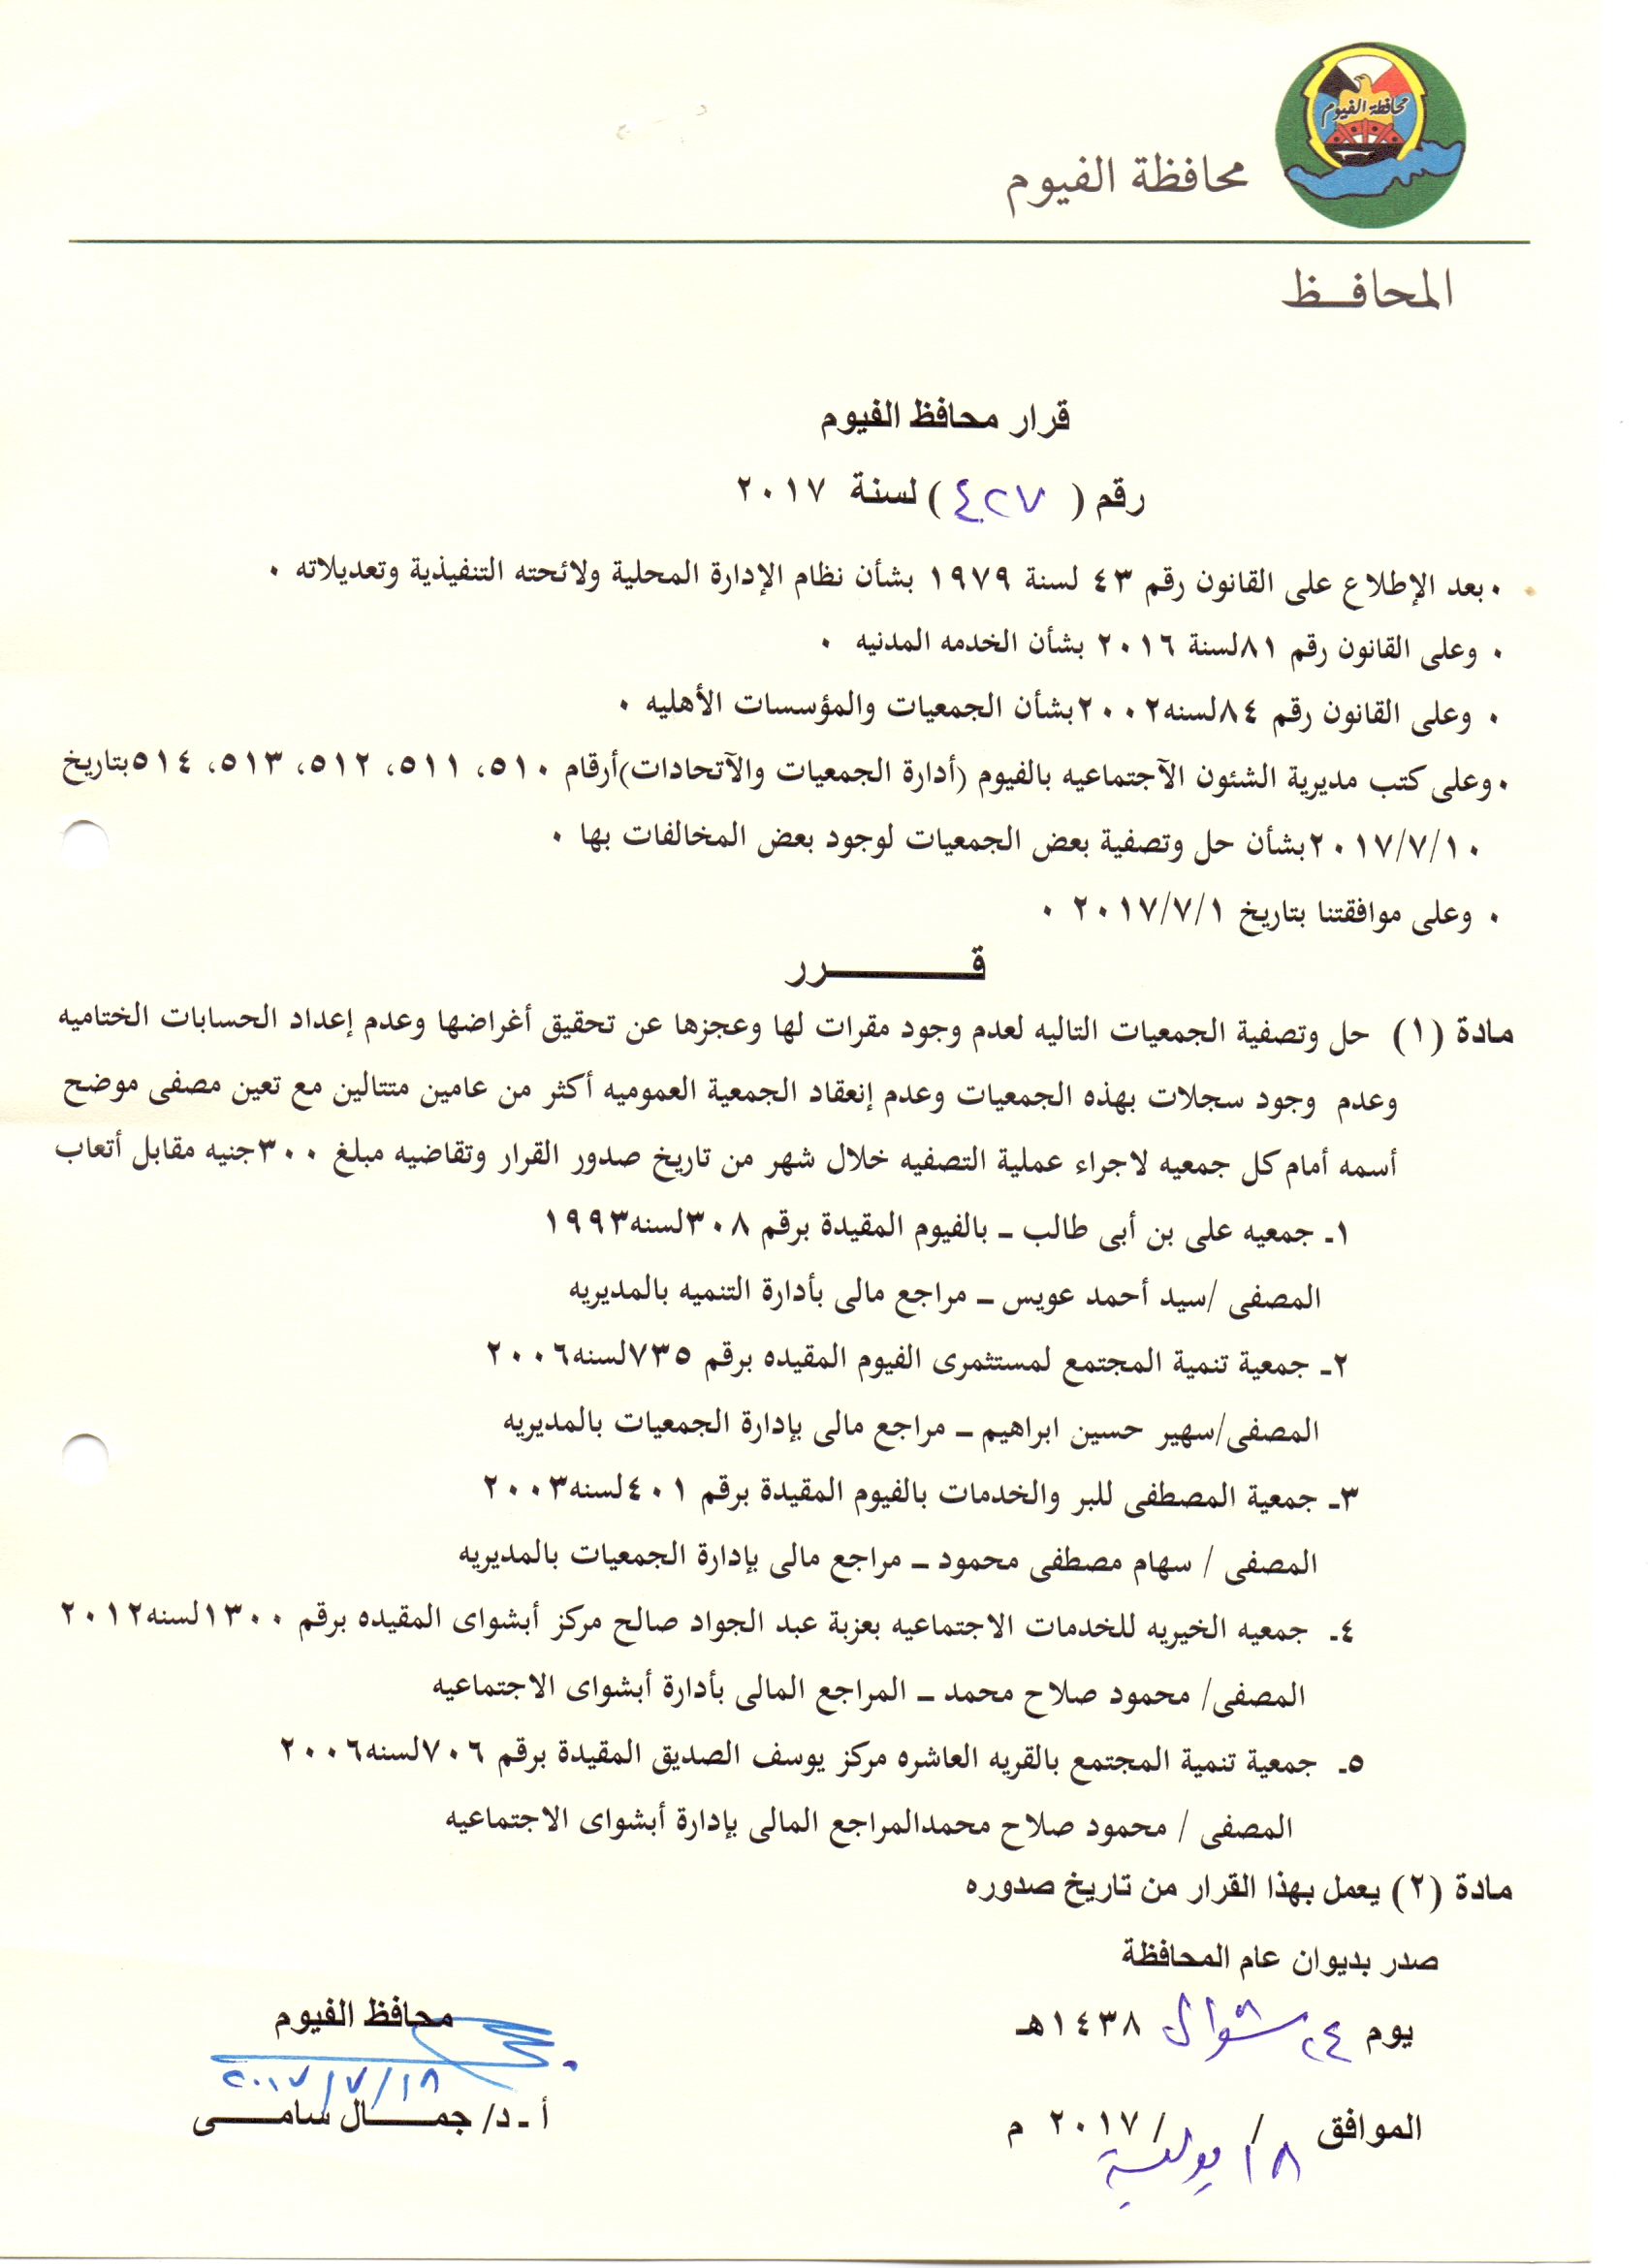 محافظة الفيوم
محافظة الفيوم
المحافـــظ
قرار محافظ الفيوم
رقم ( ٤٢٧ ) لسنة ٢٠١٧
٠ بعد الإطلاع على القانون رقم ٤٣ لسنة ١٩٧٩ بشأن نظام الإدارة المحلية ولائحته التنفيذية وتعديلاته ٠
٠ وعلى القانون رقم ٨١لسنة ٢٠١٦ بشأن الخدمه المدنيه ٠
٠ وعلى القانون رقم ٨٤لسنه٢٠٠٢بشأن الجمعيات والمؤسسات الأهليه ٠
٠ وعلى كتب مديرية الشئون الآجتماعيه بالفيوم (أدارة الجمعيات والآتحادات)أرقام ٥١٠، ٥١١، ٥١٢، ٥١٣، ٥١٤بتاريخ
٢٠١٧/٧/١٠بشأن حل وتصفية بعض الجمعيات لوجود بعض المخالفات بها ٠
٠ وعلى موافقتنا بتاريخ ٢٠١٧/٧/١ ٠
قـــــــــــرر
مادة (١) حل وتصفية الجمعيات التاليه لعدم وجود مقرات لها وعجزها عن تحقيق أغراضها وعدم إعداد الحسابات الختاميه
وعدم وجود سجلات بهذه الجمعيات وعدم إنعقاد الجمعية العموميه أكثر من عامين متتالين مع تعين مصفى موضح
أسمه أمام كل جمعيه لاجراء عملية التصفيه خلال شهر من تاريخ صدور القرار وتقاضيه مبلغ ٣٠٠جنيه مقابل أتعاب
١ـ جمعيه على بن أبى طالب ــ بالفيوم المقيدة برقم ٣٠٨لسنه١٩٩٣
المصفى /سيد أحمد عويس ــ مراجع مالى بأدارة التنميه بالمديريه
٢ـ جمعية تنمية المجتمع لمستثمرى الفيوم المقيده برقم ٧٣٥لسنه٢٠٠٦
المصفى/سهير حسين ابراهيم ــ مراجع مالى بإدارة الجمعيات بالمديريه
٣ـ جمعية المصطفى للبر والخدمات بالفيوم المقيدة برقم ٤٠١لسنه٢٠٠٣
المصفى / سهام مصطفى محمود ــ مراجع مالى بإدارة الجمعيات بالمديريه
٤ـ جمعيه الخيريه للخدمات الاجتماعيه بعزبة عبد الجواد صالح مركز أبشواى المقيده برقم ١٣٠٠لسنه٢٠١٢
المصفى/ محمود صلاح محمد ــ المراجع المالى بأدارة أبشواى الاجتماعيه
٥ـ جمعية تنمية المجتمع بالقريه العاشره مركز يوسف الصديق المقيدة برقم ٧٠٦لسنه٢٠٠٦
المصفى / محمود صلاح محمدالمراجع المالى بإدارة أبشواى الاجتماعيه
مادة (٢) يعمل بهذا القرار من تاريخ صدوره
صدر بديوان عام المحافظة
يوم ٢٤ شوال ١٤٣٨هـ
الموافق / / ٢٠١٧ م
١٨ يولية
محافظ الفيوم
٢٠١٧/٧/١٨
أ ـ د/ جمـــــال سامـــــى